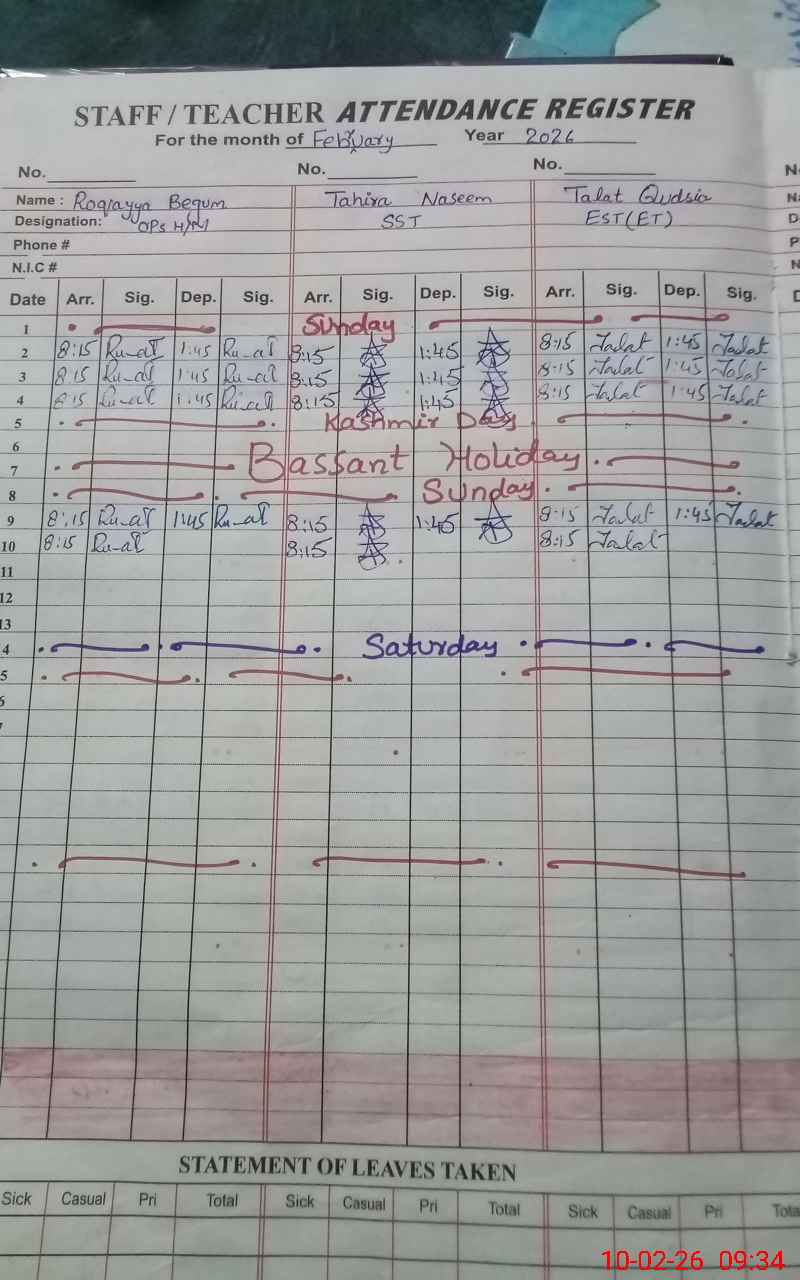 STAFF / TEACHER ATTENDANCE REGISTER
For the month of February Year 2026
No. No. No.
Name : Roqiayya Begum Tahira Naseem Talat Qudsia
Designation: OPs H/M SST EST(ET)
Phone #
N.I.C #
Date Arr. Sig. Dep. Sig. Arr. Sig. Dep. Sig. Arr. Sig. Dep. Sig.
1 Sunday
2 8:15 1:45 8:15 1:45 8:15 Talat 1:45 Talat
3 8:15 1:45 8:15 1:45 8:15 Talat 1:45 Talat
4 8:15 1:45 8:15 1:45 8:15 Talat 1:45 Talat
5 Kashmir Day
6
7 Bassant Holiday
8 Sunday
9 8:15 1:45 8:15 1:45 8:15 Talat 1:45 Talat
10 8:15 8:15 8:15 Talat
11
12
13
4 Saturday
5
6
7
STATEMENT OF LEAVES TAKEN
Sick Casual Pri Total Sick Casual Pri Total Sick Casual Pri Tota
10-02-26 09:34